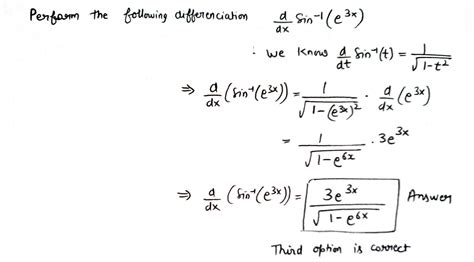 Perform the following differenciation d/dx Sin⁻¹(e^{3x})
∵ we know d/dt Sin⁻¹(t) = 1/√(1-t²)
⇒ d/dx (Sin⁻¹(e^{3x})) = 1/√(1-(e^{3x})²) · d/dx (e^{3x})
= 1/√(1-e^{6x}) · 3e^{3x}
⇒ d/dx (Sin⁻¹(e^{3x})) = 3e^{3x}/√(1-e^{6x}) Answer
Third option is correct